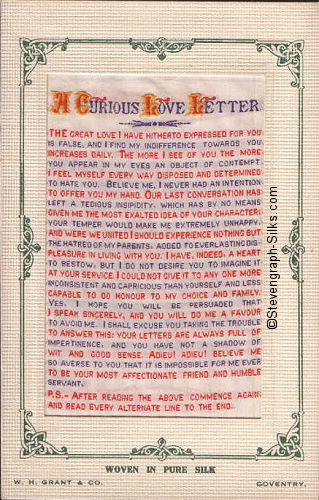 A Curious Love Letter
THE GREAT LOVE I HAVE HITHERTO EXPRESSED FOR YOU
IS FALSE, AND I FIND MY INDIFFERENCE TOWARDS YOU
INCREASES DAILY. THE MORE I SEE OF YOU THE MORE
YOU APPEAR IN MY EYES AN OBJECT OF CONTEMPT.
I FEEL MYSELF EVERY WAY DISPOSED AND DETERMINED
TO HATE YOU. BELIEVE ME, I NEVER HAD AN INTENTION
TO OFFER YOU MY HAND. OUR LAST CONVERSATION HAS
LEFT A TEDIOUS INSIPIDITY, WHICH HAS BY NO MEANS
GIVEN ME THE MOST EXALTED IDEA OF YOUR CHARACTER.
YOUR TEMPER WOULD MAKE ME EXTREMELY UNHAPPY,
AND WERE WE UNITED I SHOULD EXPERIENCE NOTHING BUT
THE HATRED OF MY PARENTS, ADDED TO EVERLASTING DIS-
PLEASURE IN LIVING WITH YOU. I HAVE, INDEED, A HEART
TO BESTOW, BUT I DO NOT DESIRE YOU TO IMAGINE IT
AT YOUR SERVICE. I COULD NOT GIVE IT TO ANY ONE MORE
INCONSISTENT AND CAPRICIOUS THAN YOURSELF AND LESS
CAPABLE TO DO HONOUR TO MY CHOICE AND FAMILY.
YES, I HOPE YOU WILL BE PERSUADED THAT
I SPEAK SINCERELY, AND YOU WILL DO ME A FAVOUR
TO AVOID ME. I SHALL EXCUSE YOU TAKING THE TROUBLE
TO ANSWER THIS; YOUR LETTERS ARE ALWAYS FULL OF
IMPERTINENCE, AND YOU HAVE NOT A SHADOW OF
WIT AND GOOD SENSE. ADIEU! ADIEU! BELIEVE ME
SO AVERSE TO YOU THAT IT IS IMPOSSIBLE FOR ME EVER
TO BE YOUR MOST AFFECTIONATE FRIEND AND HUMBLE
SERVANT.
P.S.- AFTER READING THE ABOVE COMMENCE AGAIN,
AND READ EVERY ALTERNATE LINE TO THE END.
WOVEN IN PURE SILK
W. H. GRANT & CO. COVENTRY.
©Stevengraph-Silks.com